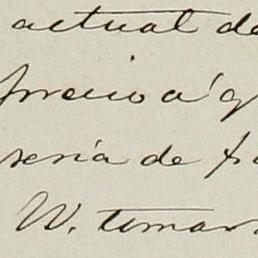 actual de
precio á q
seria de
W. tomar